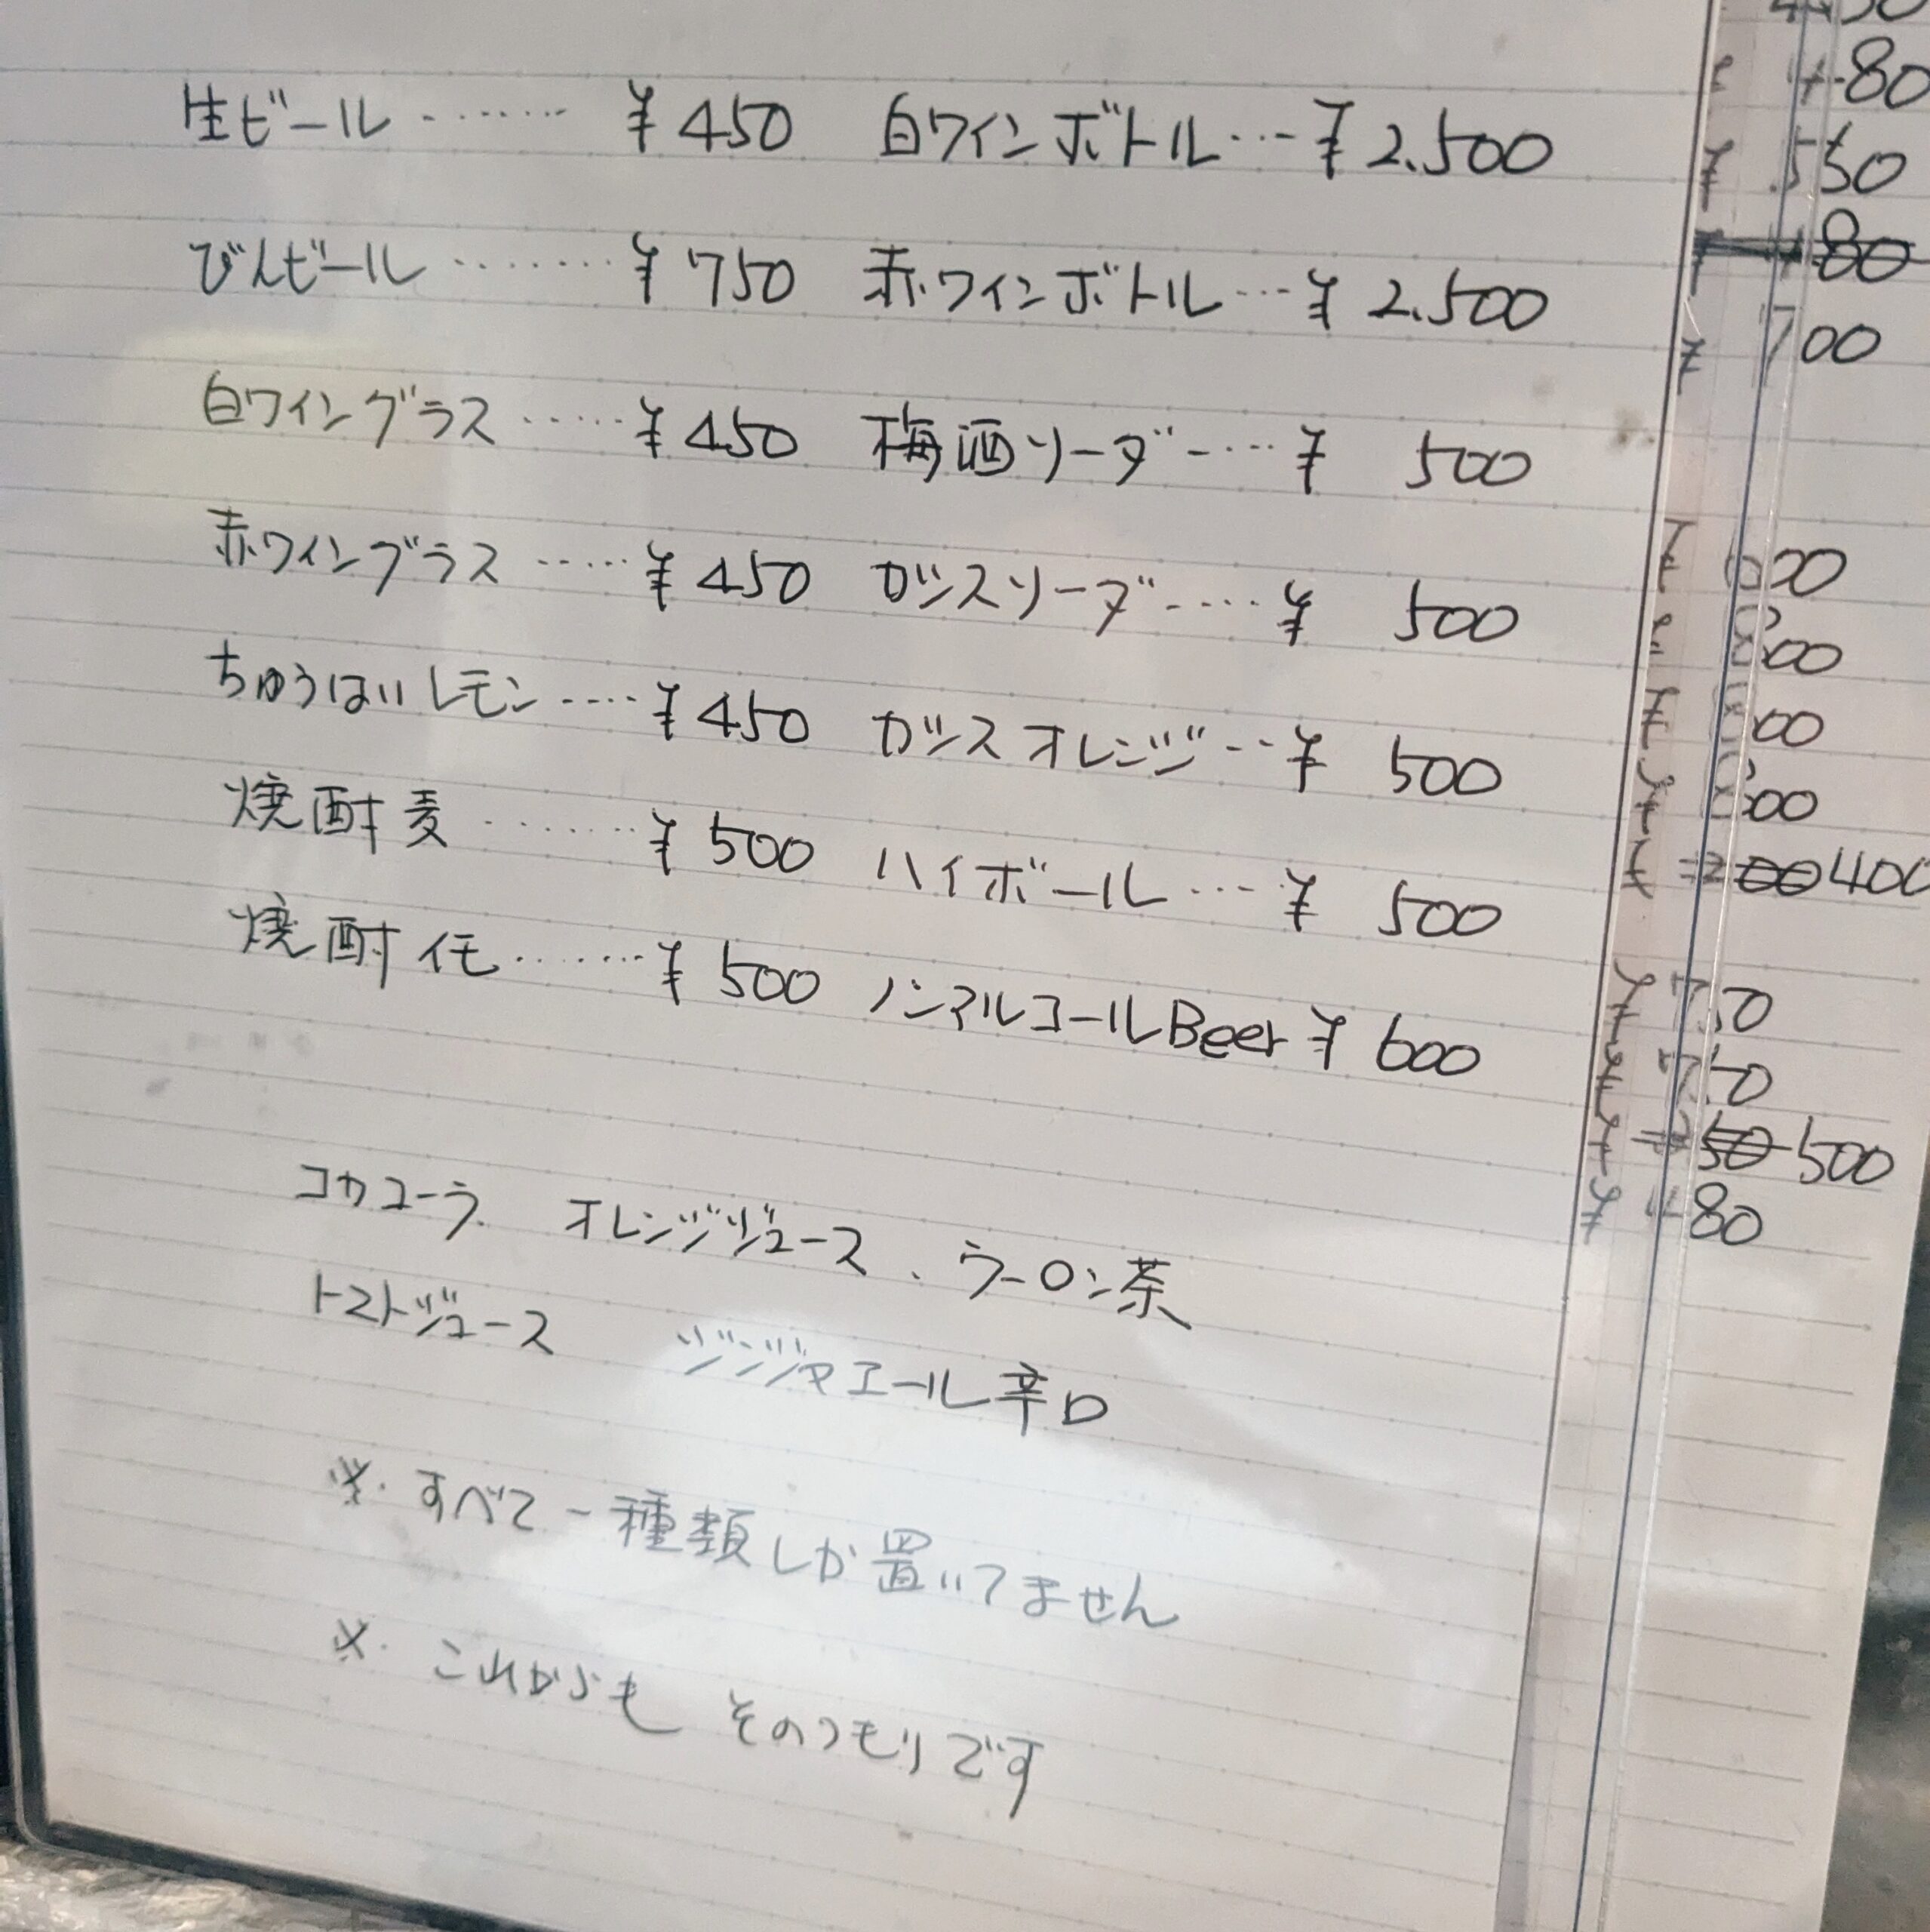 生ビール ‥‥‥ ¥450 白ワインボトル … ¥2.500
びんビール ‥‥‥ ¥750 赤ワインボトル … ¥2.500
白ワイングラス ‥‥ ¥450 梅酒ソーダ ‥‥ ¥500
赤ワイングラス ‥‥ ¥450 カシスソーダ ‥‥ ¥500
ちゅうはいレモン ‥‥ ¥450 カシスオレンジ ‥ ¥500
焼酎麦 ‥‥‥ ¥500 ハイボール … ¥500
焼酎イモ ‥‥‥ ¥500 ノンアルコールBeer ¥600
コカコーラ、オレンジジュース、ウーロン茶
トマトジュース ジンジャエール辛口
※.すべて一種類しか置いてません
※.これからも そのつもりです
480
¥550
¥480
¥700
400
500
¥480